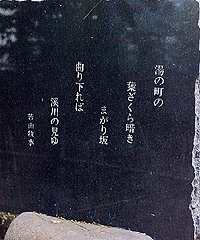 湯の町の
葉ざくら暗き
まがり坂
曲り下れば
渓川の見ゆ
若山牧水